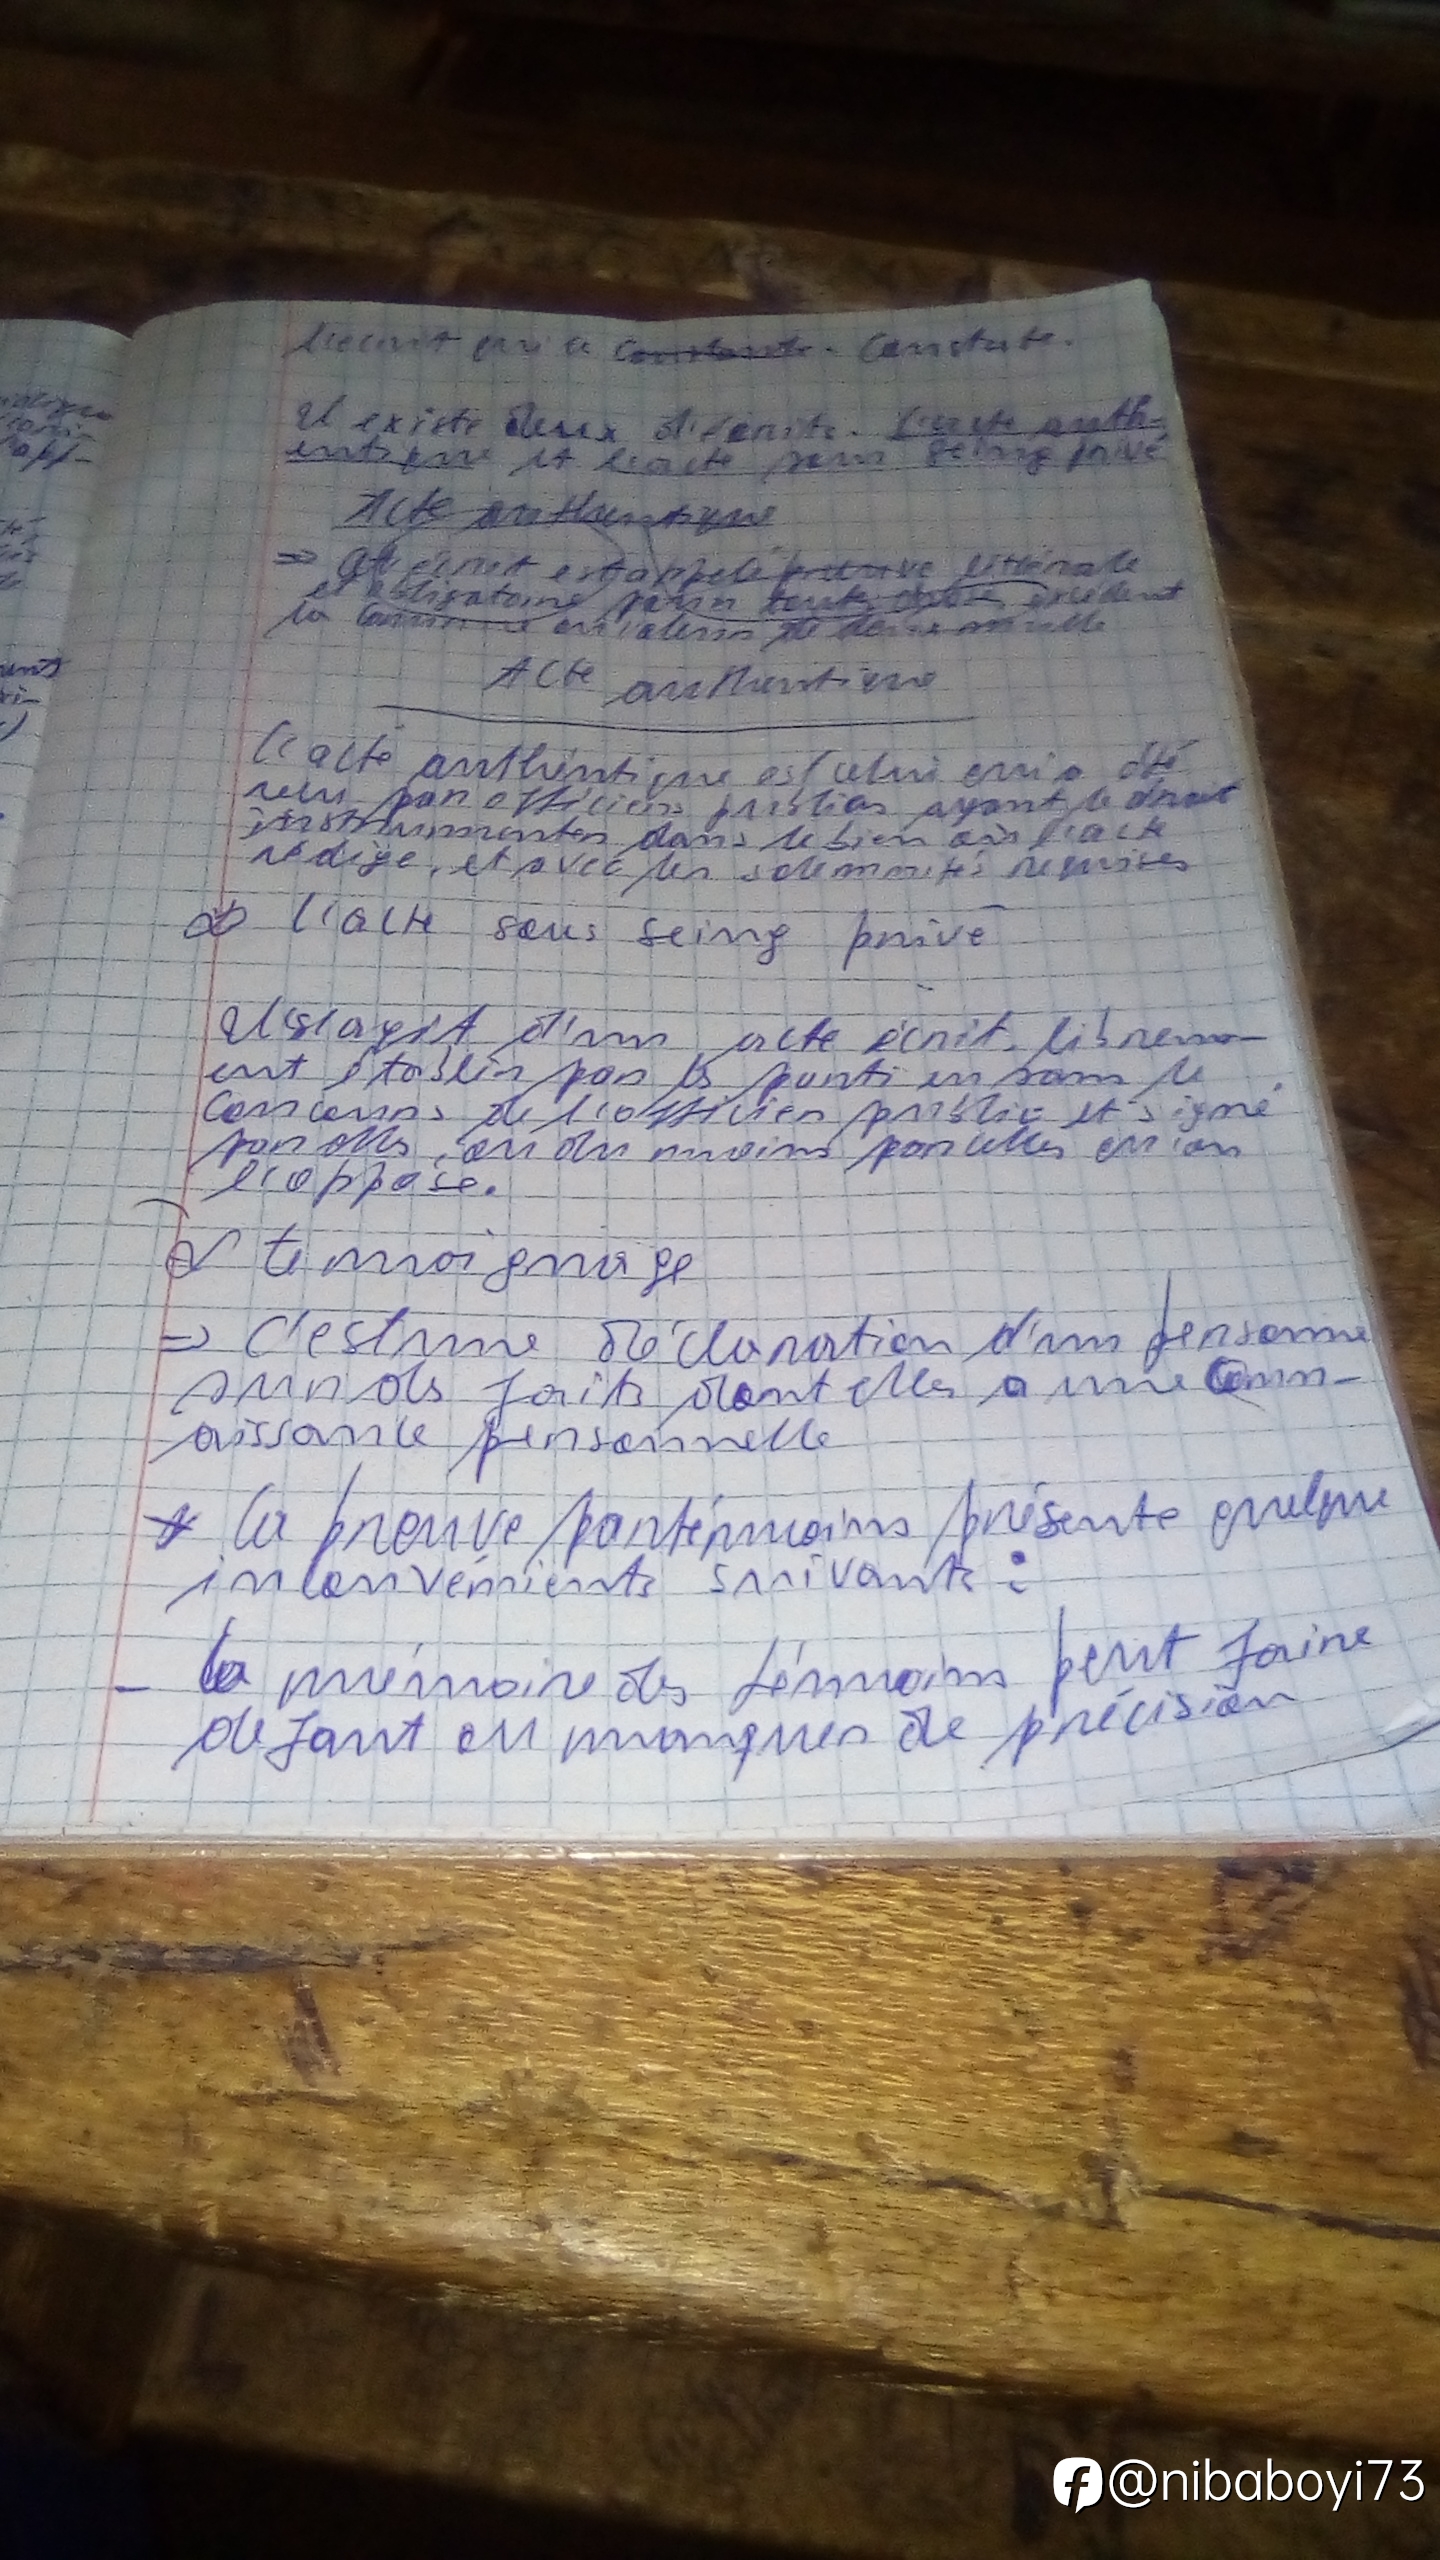 l'écrit qui a Constaté.
Il existe deux d'écrits. L'acte auth-
entique et l'acte sous seing privé
Acte authentique
=> écrit est appelé preuve littérale
et obligatoire pour excédent
la somme ou valeur de deux mille
Acte authentique
L'acte authentique est celui qui a été
reçu par officiers publics ayant le droit
instrumenter dans le lien où l'acte
rédige, et avec les solemnités requises
L'acte sous seing privé
Il s'agit d'un acte écrit librem-
ent établir par ls parti en sans le
concours de l'officier public et signé
par elles, ou du moins par celles qu'on
l'oppose.
temoignage
=> C'est une déclaration d'un personne
sur ds faits dont elles a une conn-
aissance personnelle
* la preuve par témoins présente quelque
inconvénients suivants :
- la mémoire des témoins peut faire
defaut ou manquer de précision
@nibaboyi73